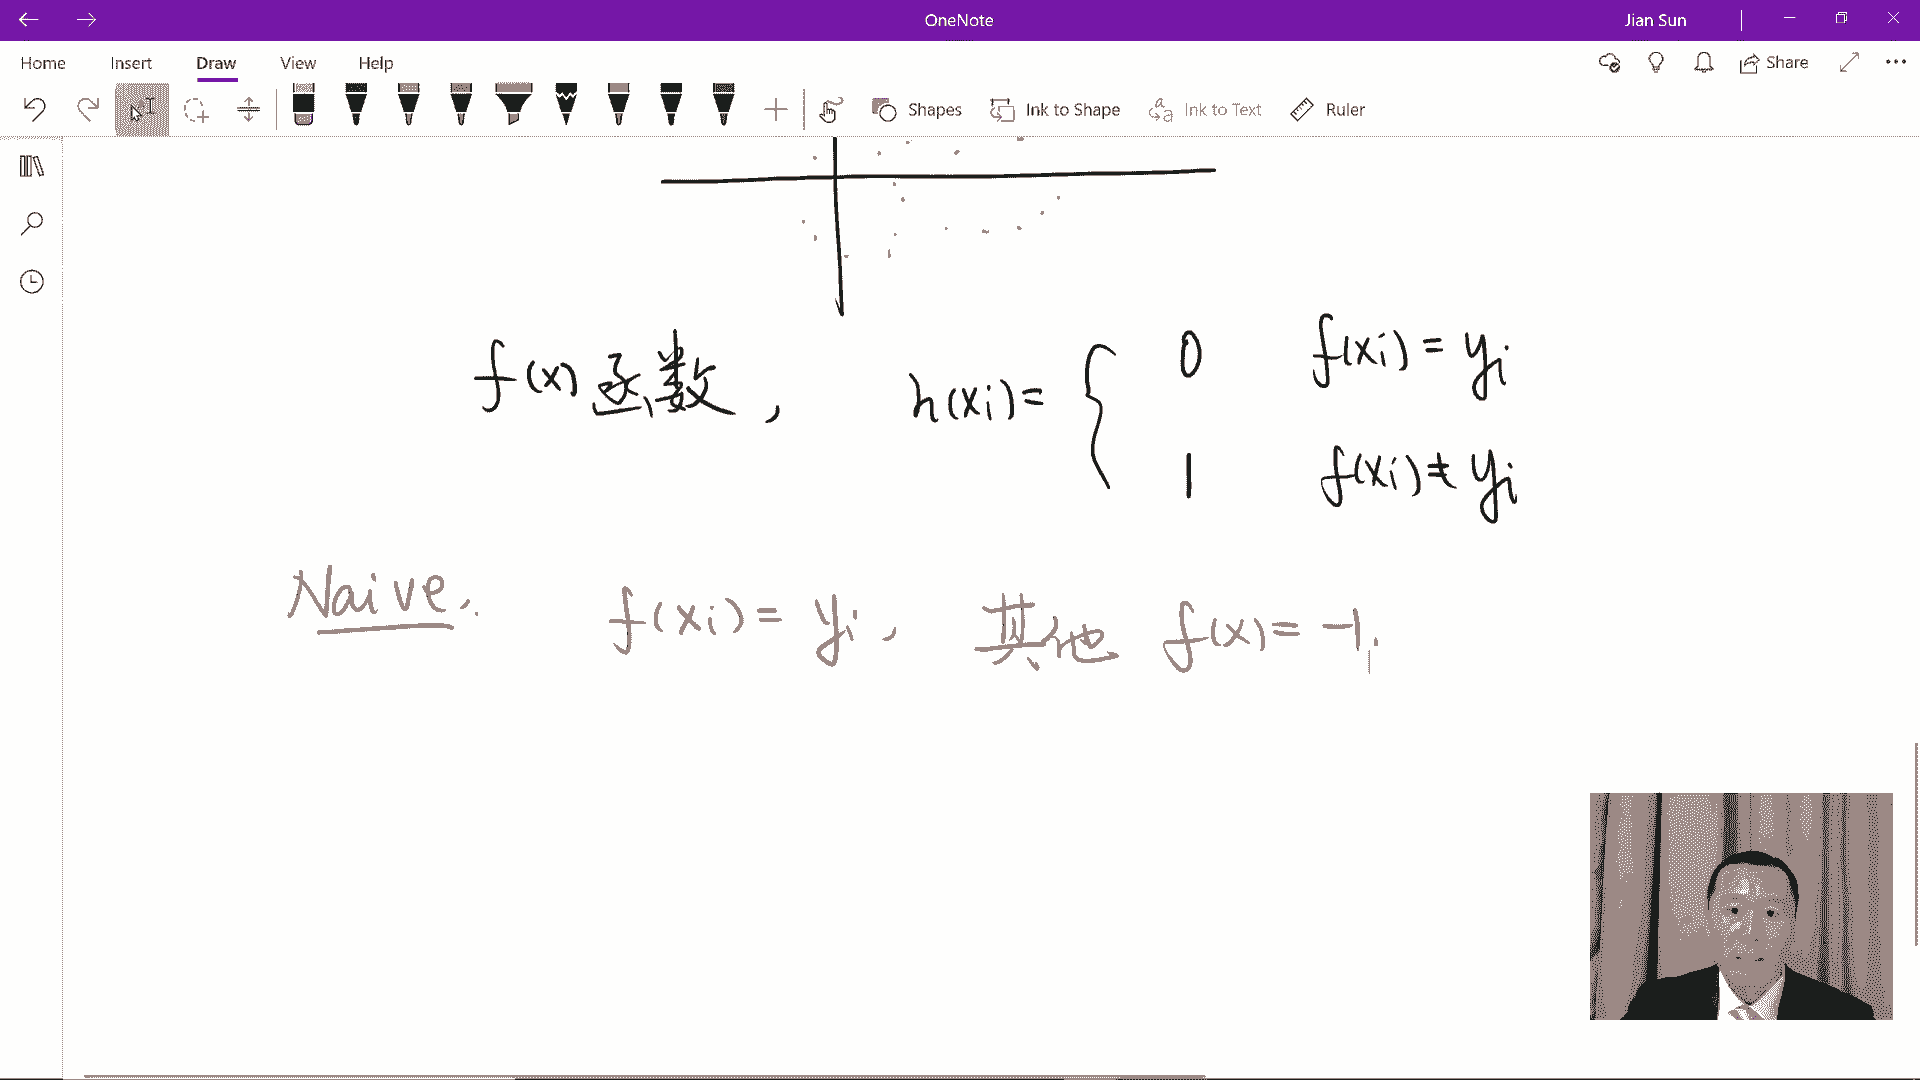 OneNote
Jian Sun
Home Insert Draw View Help
Share
Shapes Ink to Shape Ink to Text Ruler
f(x) 函数, h(xi)= { 0 f(xi) = yi
1 f(xi) ≠ yi
Naive. f(xi) = yi, 其他 f(x) = -1.